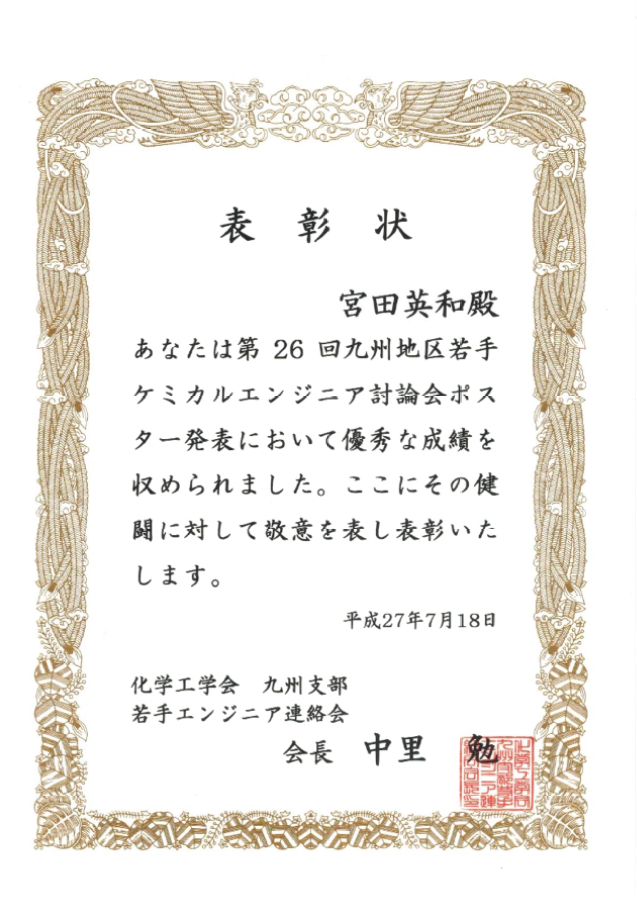 表彰状
宮田英和殿
あなたは第 26 回九州地区若手
ケミカルエンジニア討論会ポス
ター発表において優秀な成績を
収められました。ここにその健
闘に対して敬意を表し表彰いた
します。
平成27年7月18日
化学工学会　九州支部
若手エンジニア連絡会
会長　中里　勉